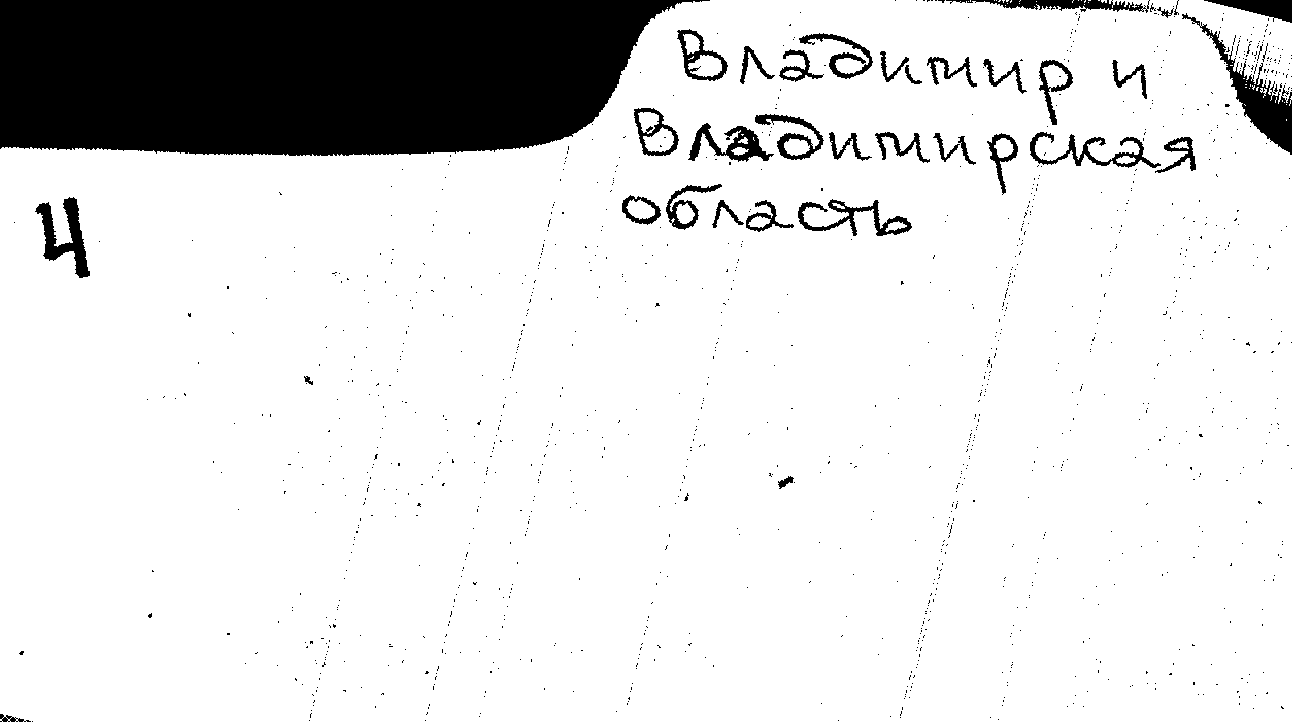 Владимир и
Владимирская
область
4